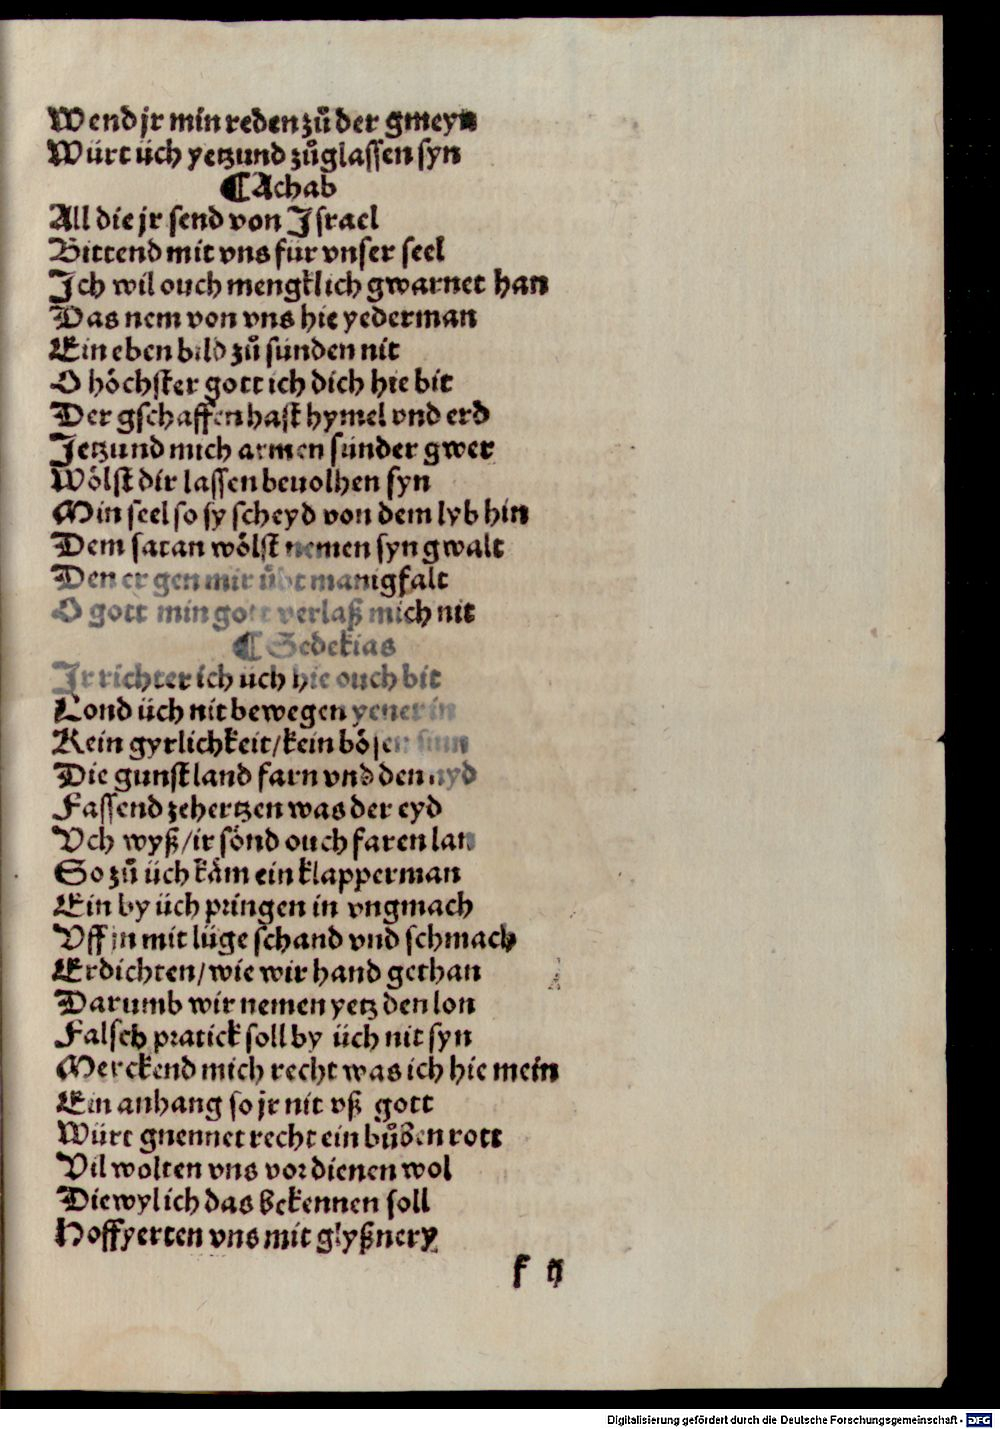 Wend jr min reden zů der gmeyn
Würt üch yetzund zůglassen syn
¶Achab
All die jr send von Jsrael
Bittend mit vns für vnser seel
Jch wil ouch mengklich gwarnet han
Das nem von vns hie yederman
Ein eben bild zů sünden nit
O höchster gott ich dich hie bit
Der gschaffen hast hymel vnd erd
Jetzund mich armen sünder gwer
Wölst dir lassen beuolhen syn
Min seel so sy scheyd von dem lyb hin
Dem satan wölst nemen syn gwalt
Den er gen mir übt manigfalt
O gott min gott verlaß mich nit
¶Sedekias
Jr richter ich üch hie ouch bit
Lond üch nit bewegen yener in
Kein gyrlichkeit/kein bösen sinn
Die gunst land farn vnd den nyd
Fassend zehertzen was der eyd
Vch wyß/ir sönd ouch faren lan
So zů üch käm ein klapperman
Ein by üch pringen in vngmach
Vff jn mit lüge schand vnd schmach
Erdichten/wie wir hand gethan
Darumb wir nemen yetz den lon
Falsch pratick soll by üch nit syn
Merckend mich recht was ich hie mein
Ein anhang so jr nit vß gott
Würt gnennet recht ein bůben rott
Vil wolten vns vor dienen wol
Diewyl ich das bekennen soll
Hoffyerten vns mit glyßnery
f ij
Digitalisierung gefördert durch die Deutsche Forschungsgemeinschaft - DFG